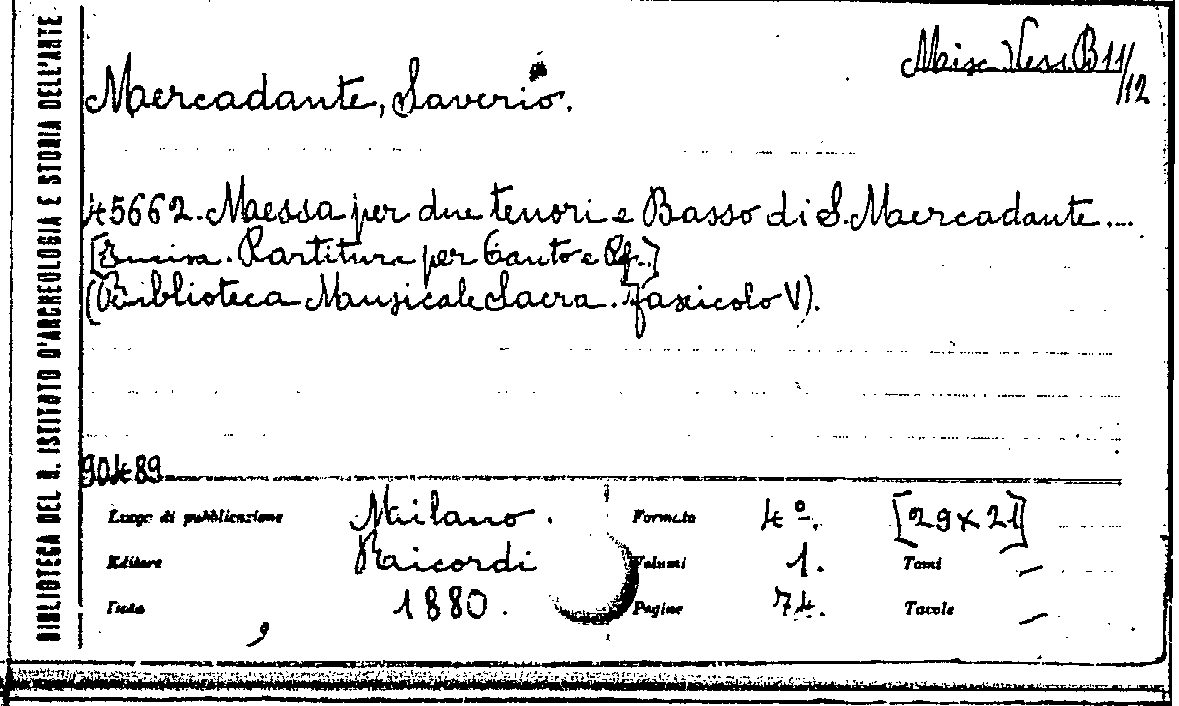 BIBLIOTECA DEL R. ISTITUTO D'ARCHEOLOGIA E STORIA DELL'ARTE
Misc. Vess. B 11/12
Mercadante, Saverio.
45662. Messa per due tenori e Basso di S. Mercadante....
[ . Partitura per Canto e Pf.]
(Biblioteca Musicale Sacra. Fascicolo V).
90489
Luogo di pubblicazione Milano. Formato 4º. [29 x 21]
Editore Ricordi Volumi 1. Tomi —
Data 1880. Pagine 74. Tavole —